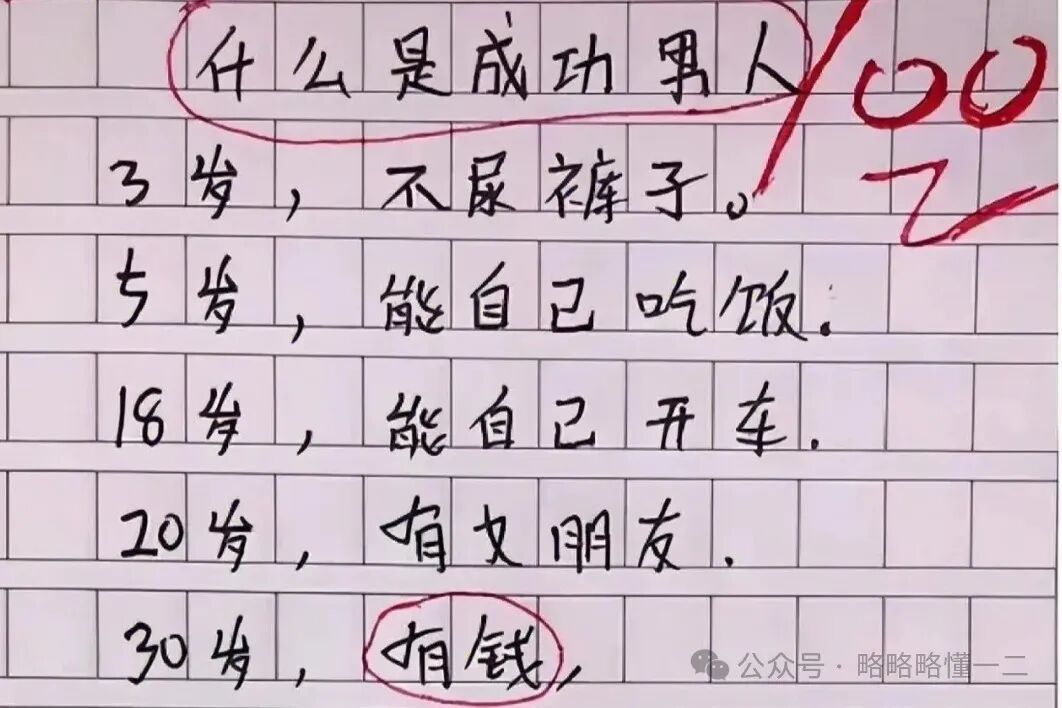 什么是成功男人
100
3岁，不尿裤子。
5岁，能自己吃饭.
18岁，能自己开车.
20岁，有女朋友.
30岁，有钱，
公众号·略略略懂一二